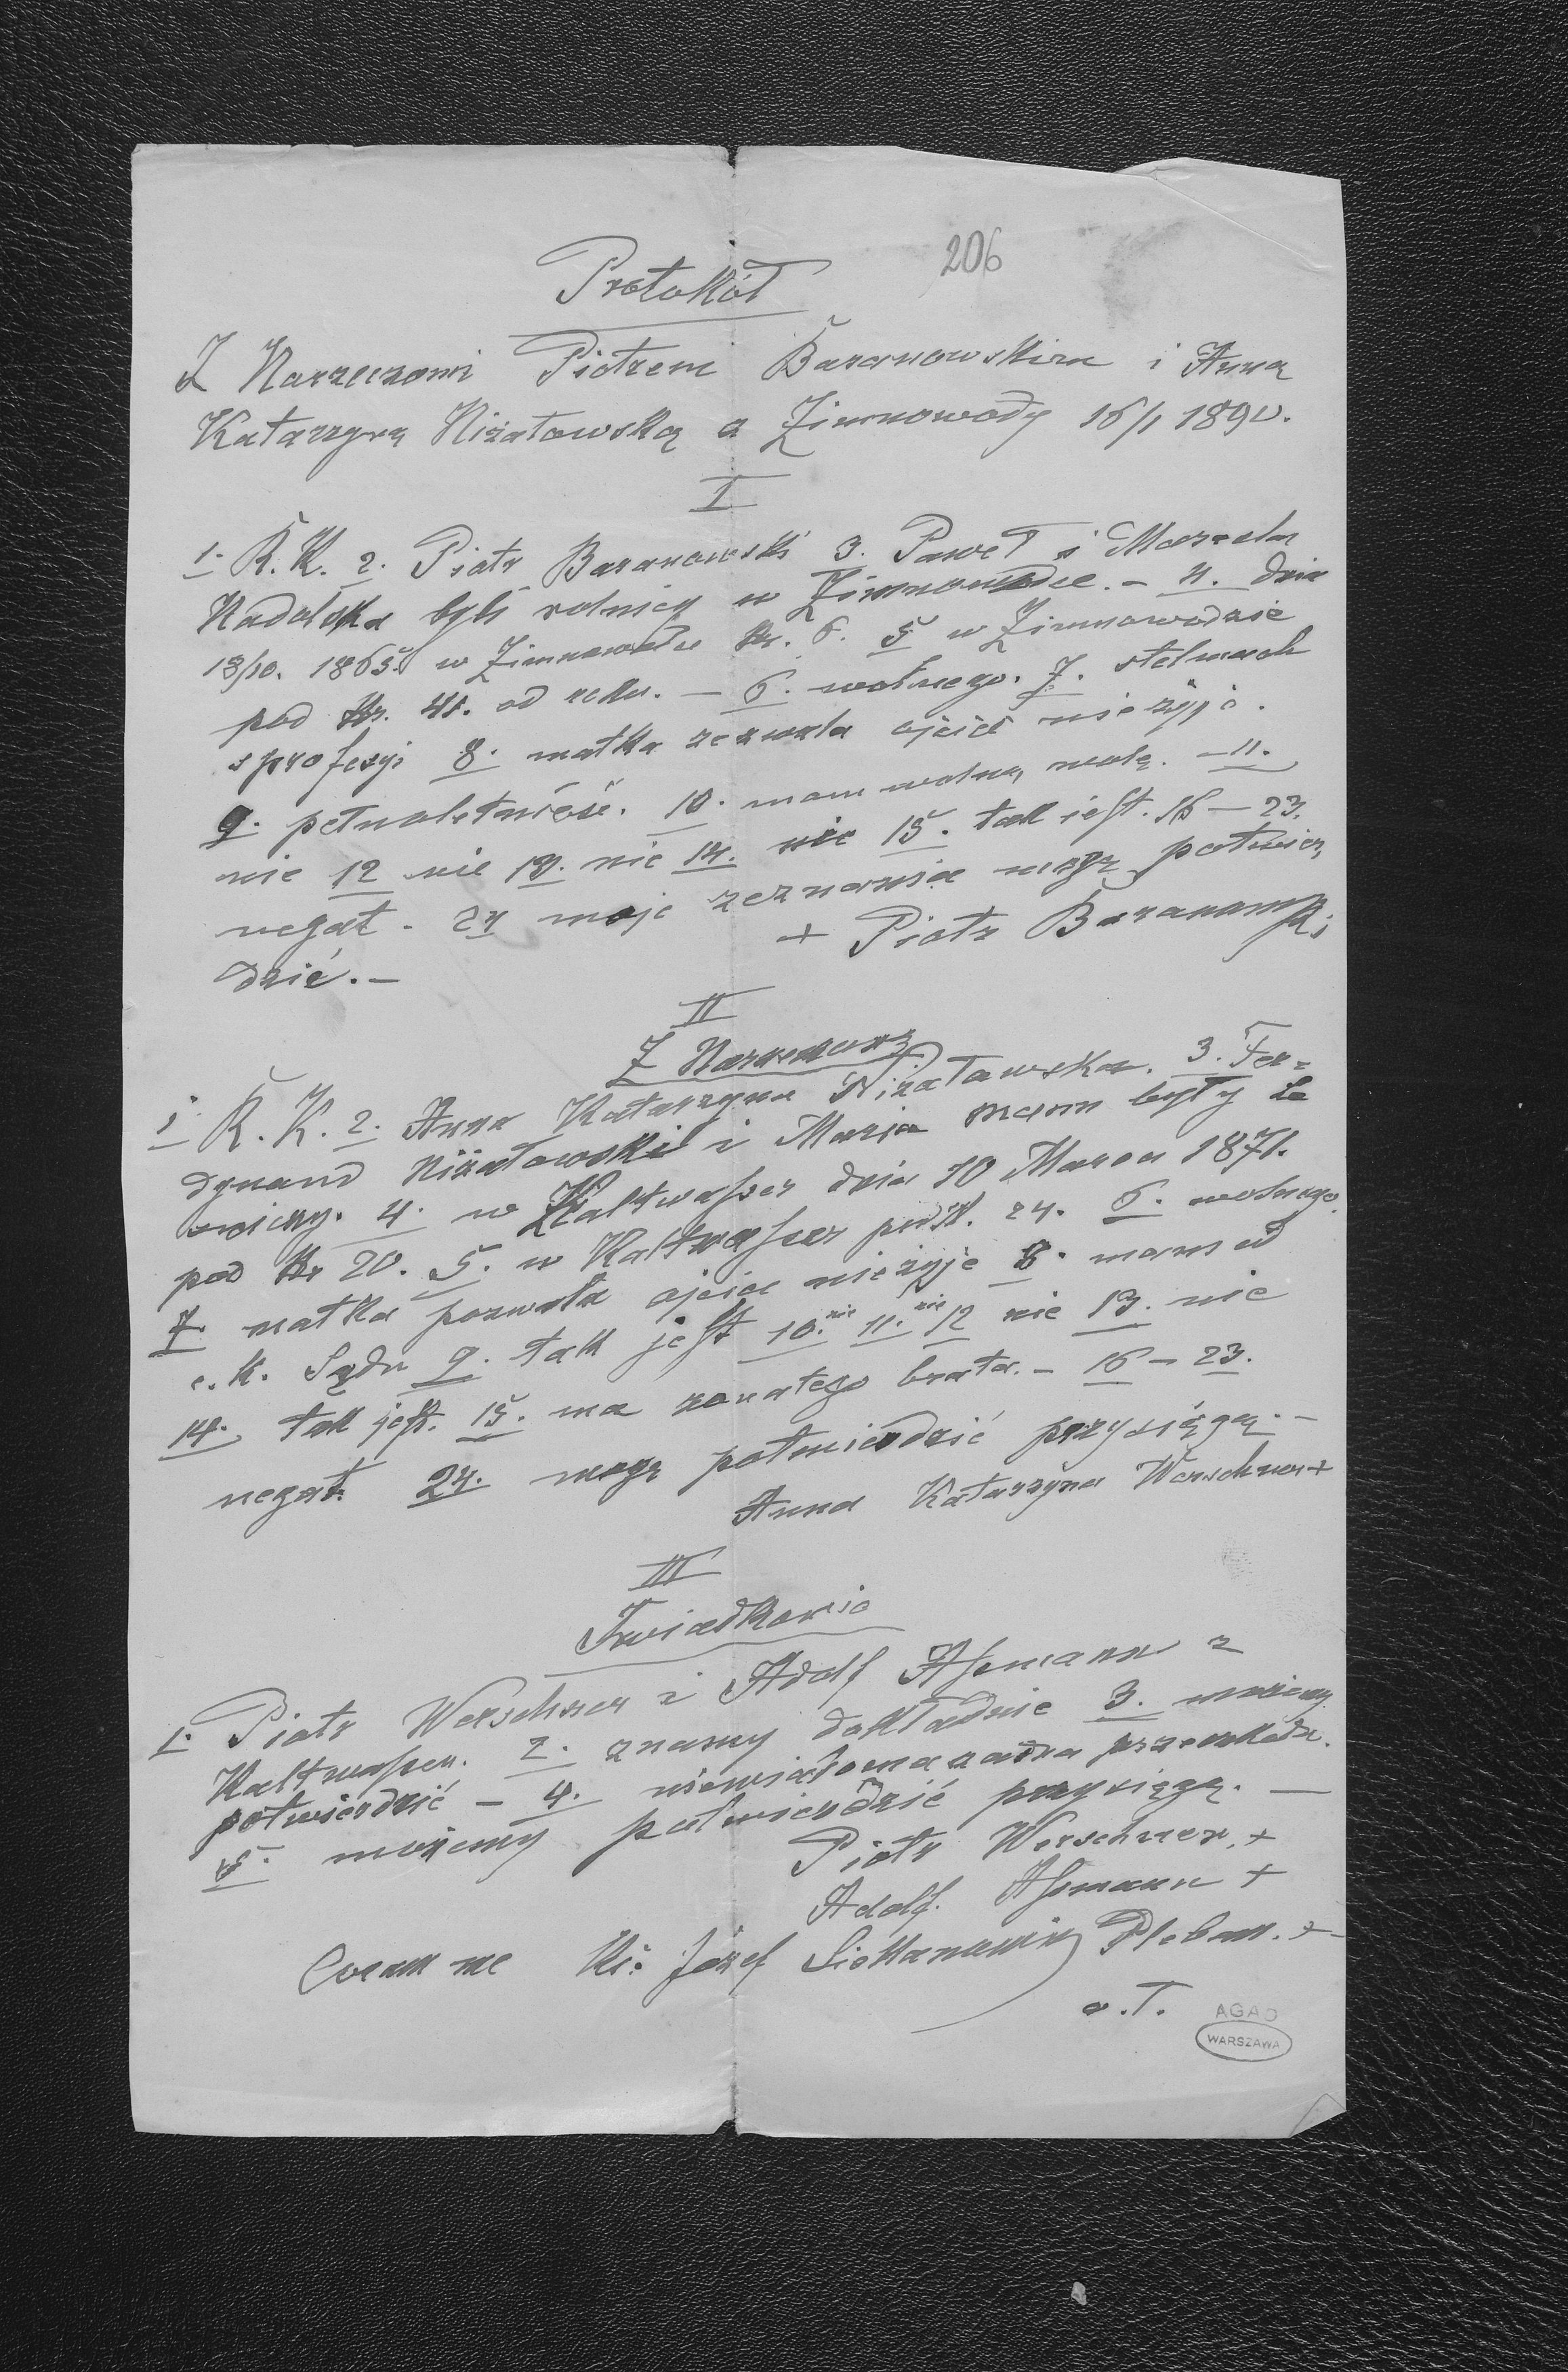 206
Protokół
Z Narzeczonemi Piotrem Baranowskim i Anną
Katarzyną Niżałowską a Zimnowody 16/1 1890.
I
1. R. K. 2. Piotr Baranowski 3. Paweł i Marcela
Nadolska byli rolnicy w Zimnowodzie. - 4. dnia
18/10. 1865. w Zimnowodzie Nr. 6. 5 w Zimnowodzie
pod Nr. 41. od roku. - 6. wolnego. 7. stelmach
s profesyi 8. matka zezwala ojciec nie żyje.
9. pełnoletność. 10. mam wolną wolę. - 11.
nie 12 nie 13. nie 14. nie 15. tak jest. 16 - 23.
negat. 24 moje zeznania mogę potwier„
dzić. -
+ Piotr Baranowski
II
Z Narzeczoną
1 R. K. 2. Anna Katarzyna Niżałowska. 3. Fer=
dynand Niżałowski i Maria Mann były le
śniczy. 4. w Kaltwasser dnia 10 Marca 1871.
pod Nr 20. 5. w Kaltwasser pod N. 24. 6. wolnego.
7. matka pozwala ojciec nie żyje 8. mam od
c. k. Sądu 9. tak jest 10. nie 11. nie 12 nie 13. nie
14. tak jest. 15. ma żonatego brata. - 16 - 23.
negat. 24. mogę potwierdzić przysięgą. -
Anna Katarzyna Werschner +
III
Świadkowie
1. Piotr Werschner i Adolf Assmann z
Kaltwasser. 2. znamy dokładnie 3. możemy
potwierdzić - 4. niewiadoma żadna przeszkoda.
5. możemy potwierdzić przysięgą. -
Piotr Werschner. +
Adolf. Assmann +
Coram me Ks. Józef Pleban. +
AGAD
WARSZAWA